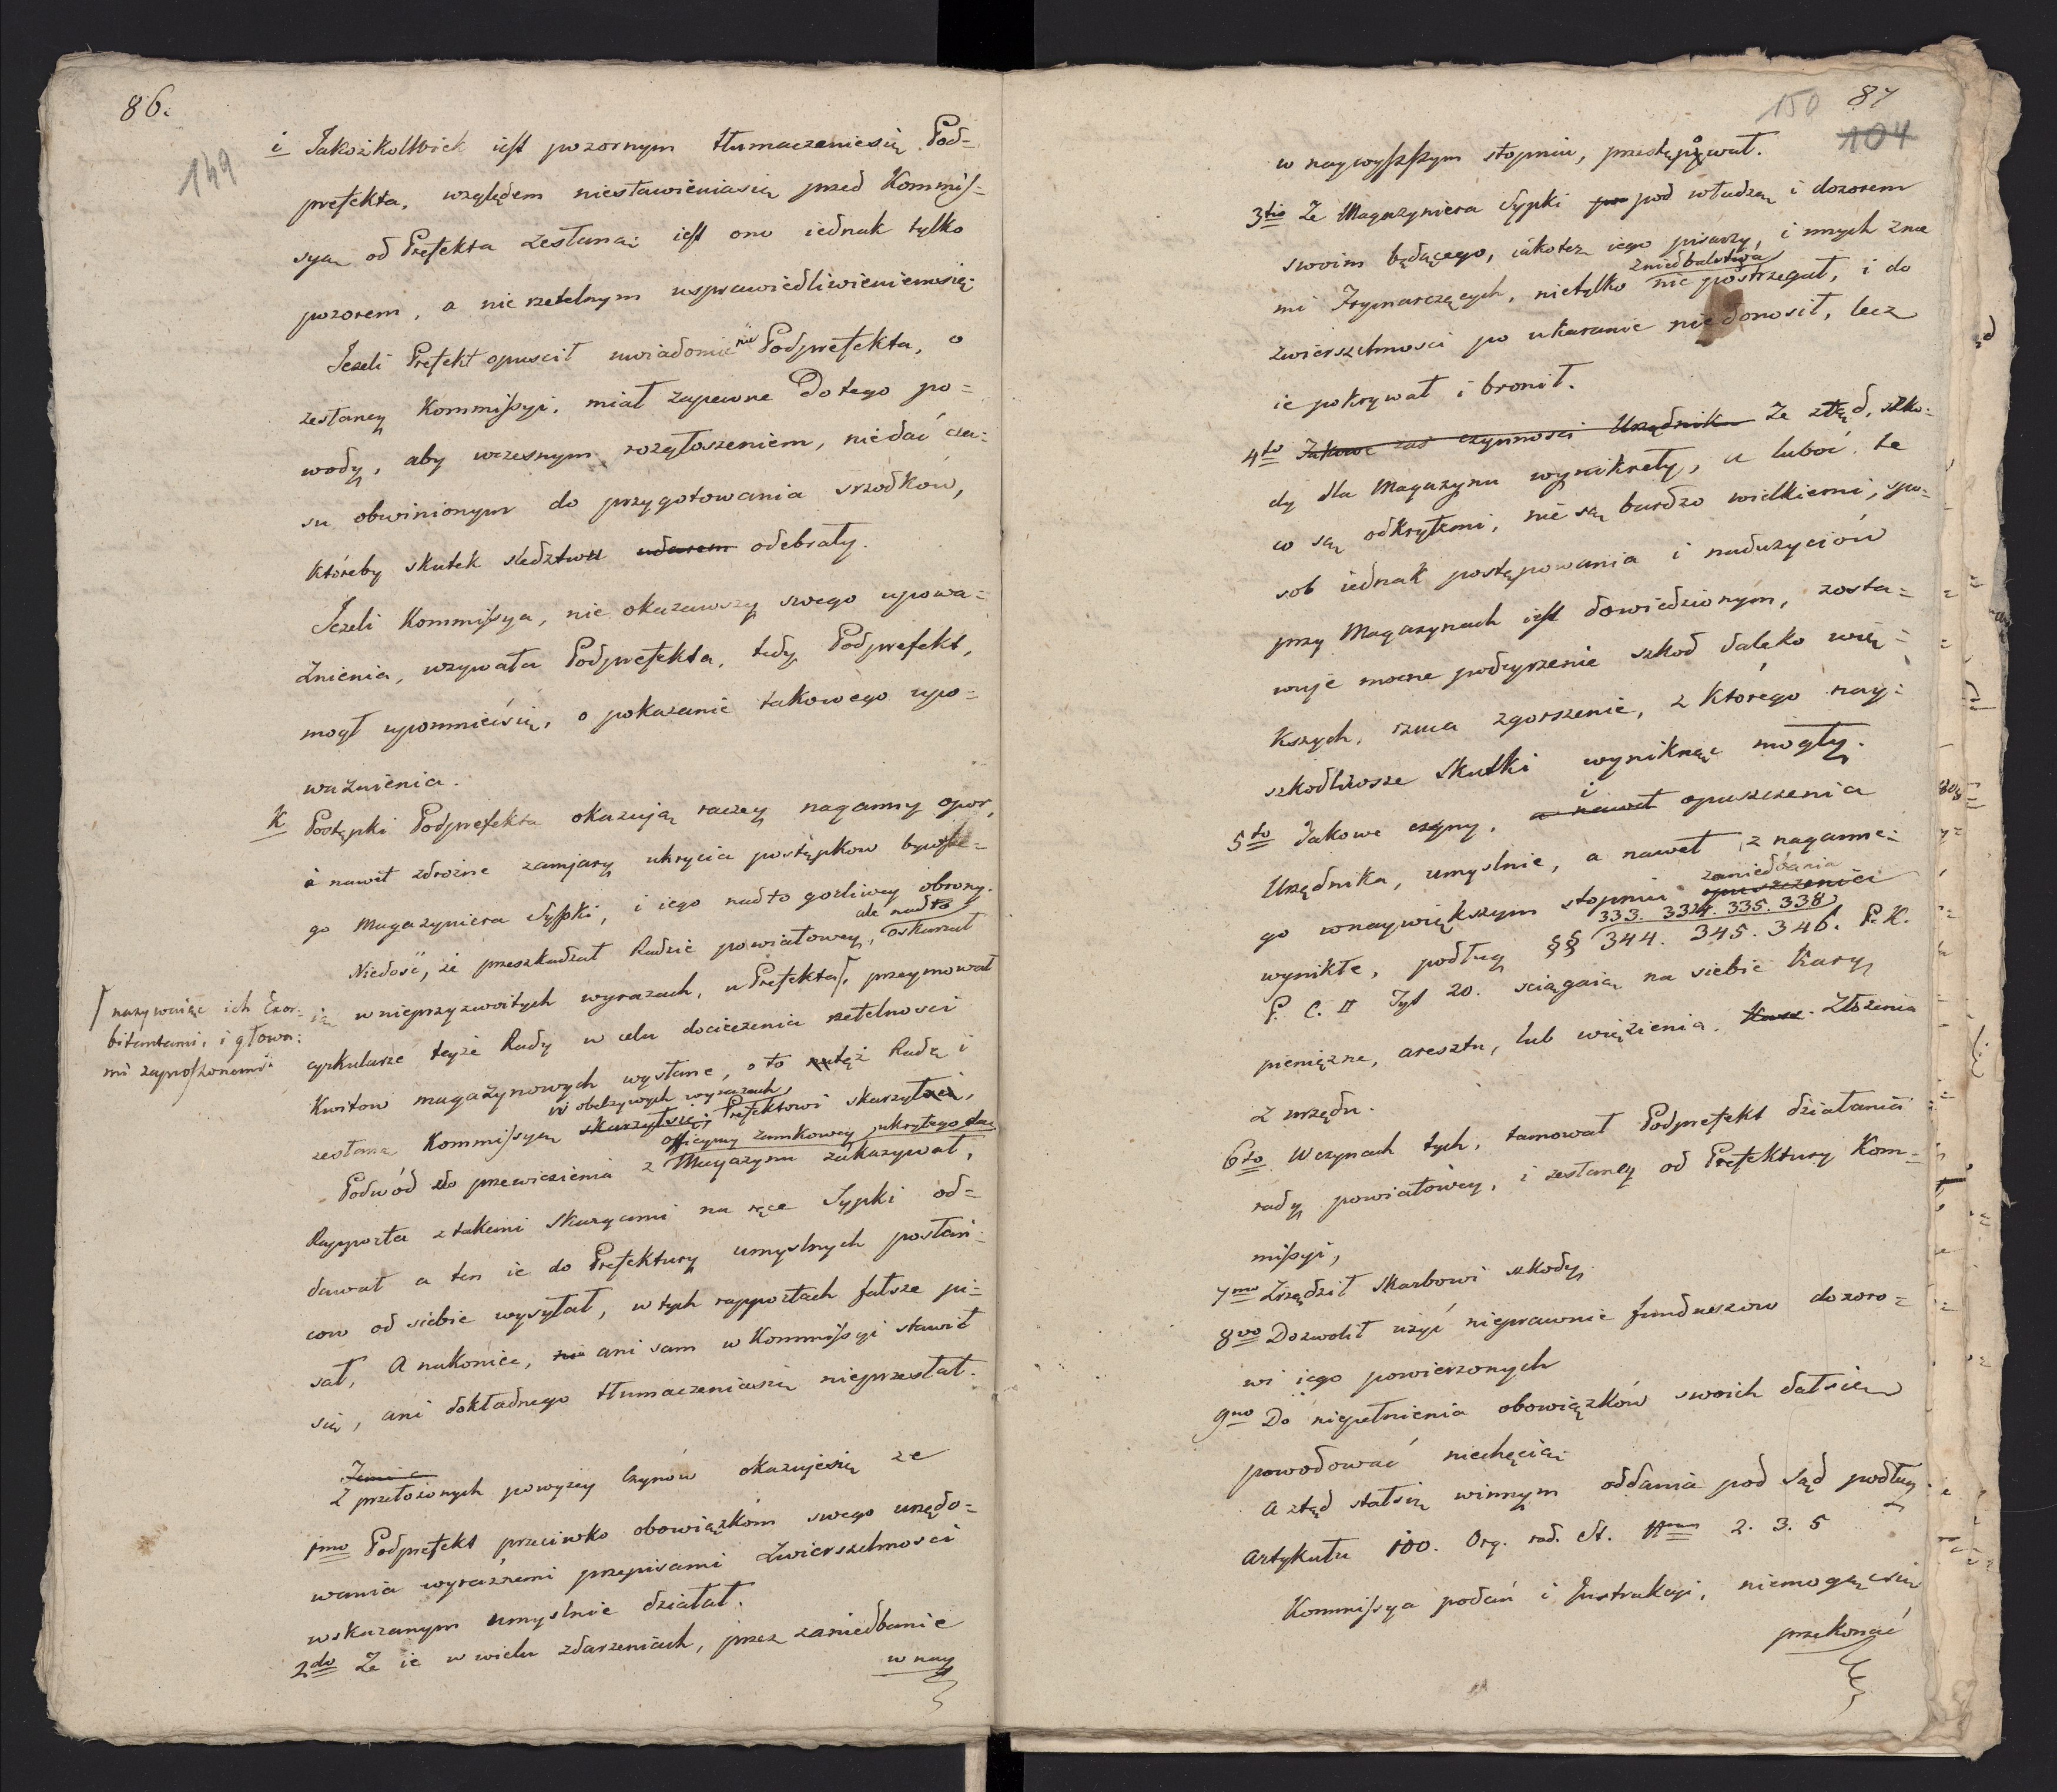 86.
149
i Jakożkolwiek iest pozornym tłumaczeniesię Pod=
prefekta, względem niestawieniasię przed Kommis=
syą od Prefekta zesłaną; iest ono iednak tylko
pozorem, a nie rzetelnym usprawiedliwieniemsię;
Jeżeli Prefekt opuscił uwiadomienie Podprefekta, o
zesłaney Kommissyi, miał zapewne do tego po=
wody, aby wczesnym rozgłoszeniem, niedać cza=
su obwinionym do przygotowania srzodków,
któreby skutek sledztwu udarem odebrały.
Jeżeli Kommissya, nie okazawszy swego upowa=
żnienia, wzywała Podprefekta, tedy Podprefekt,
mogł upomniećsię, o pokazanie takowego upo=
ważnienia.
K Postępki Podprefekta okazują raczey naganny opor,
a nawet zdrożne zamiary ukrycia postępkow bywsze=
go Magazyniera Sypki, i iego nadto gorliwey obrony.
ale nadto
Niedość, że przeszkadzał Radzie powiatowey, oskarżał
ią w nieprzyzwoitych wyrazach, u Prefekta, przeymował
nazywaiąc ich Exor=
bitantami, i głowa=
mi zaproszonemi
cyrkularze teyże Rady w celu docieczenia rzetelnosci
Kwitow magazynowych wysłane, o to też Radę i
w obelżywych wyrazach
zesłaną Kommissyą skarzyłsię; Prefektowi skarzył,
officyny zamkowey, ukrytego
Podwód do przewiezienia z Magazynu zakazywał,
Rapporta z takiemi skargami na ręce Sypki od=
dawał a ten ie do Prefektury umyslnych posłań=
cow od siebie wysyłał, w tych rapportach fałsze pi=
sał, A nakoniec, nie ani sam w Kommissyi stawił
się, ani dokładnego tłumaczeniasię nieprzesłał.
Z przełożonych powyżey Czynów okazujesię że
1mo Podprefekt przeciwko obowiązkóm swego urzędo=
wania wyraźnemi przepisami Zwierzchnosci
wskazanym umyslnie działał.
2do Że ie w wielu zdarzeniach, przez zaniedbanie
w nay
150 87
104
w naywyższym stopniu, przestępował.
3tio Że Magazyniera Sypki pod władzą i dozorem
swoim będącego, iakoteż iego pisarzy, i innych z nie
zniedbalstwa
mi Frymarczących, nietylko nie postrzegał, i do
zwierzchnosci po ukaranie niedonosił, lecz
ie pokrywał i bronił.
4to Jakowe zaś czynnosci Urzędnika Że ztąd, szko=
dy dla Magazynu wyniknęły, a luboć te
co są odkrytemi, nie są bardzo wielkiemi, spo=
sob iednak postępowania i nadużyciów
przy Magazynach iest dowiedzionym, zosta=
wuje mocne podeyrzenie szkod daleko wię=
kszych, zgorszenie, z którego nay=
szkodliwsze skutki wyniknąć mogły.
i
5to Jakowe czyny, a nawet opuszczenia
Urzędnika, umyslnie, a nawet z naganne=
zaniedbania
go wnaywiększym stopniu opuszczenia
333. 334. 335. 338
wynikłe, podług §§ 344. 345. 346. P. K.
P. C. II Tyt 20. sciągaią na siebie Kary
pieniężne, aresztu, lub więzienia. Złożenia
z urzędu.
6to W czynach tych, tamował Podprefekt działania
rady powiatowey, i zesłaney od Prefektury Kom=
missyi,
7mo Zrządził skarbowi szkody
8vo Dozwolił użyć nieprawnie funduszow dozoro=
wi iego powierzonych
9no Do niepełnienia obowiązków swoich dałsię
powodować niechęcią;
A ztąd stałsię winnym oddania pod Sąd podług
Artykułu 100. Org. rad. St. 2. 3. 5
Kommissya podań i Instrukcyi, niemogącsię
przekonać